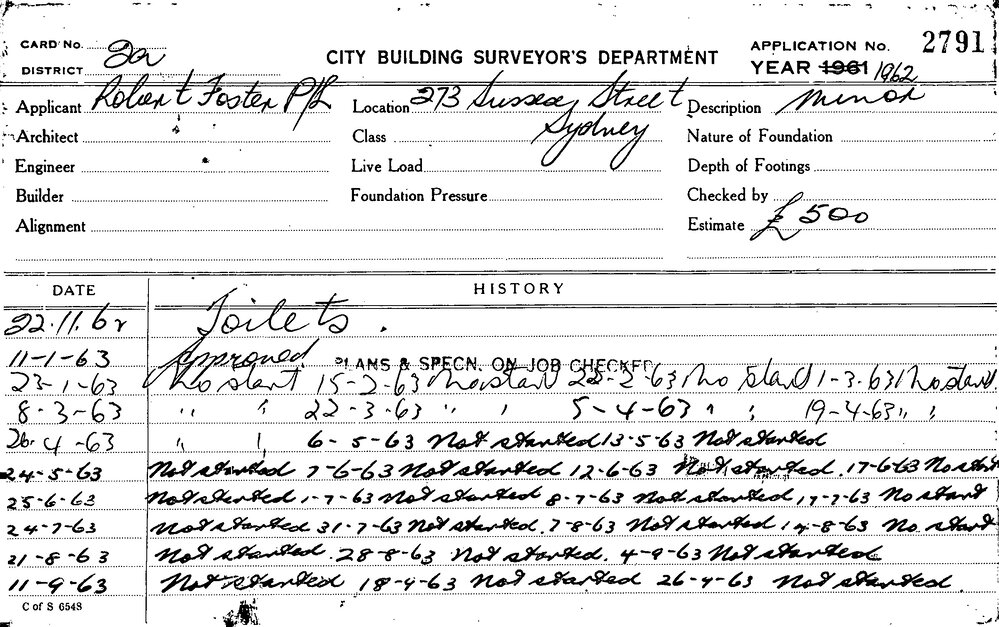 CARD No. 2a CITY BUILDING SURVEYOR'S DEPARTMENT APPLICATION No. 2791
DISTRICT YEAR 1961 1962
Applicant Robert Foster P/L Location 273 Sussex Street Description Minor
Architect Class Sydney Nature of Foundation
Engineer Live Load Depth of Footings
Builder Foundation Pressure Checked by
Alignment Estimate £500
DATE HISTORY
22.11.62 Toilets.
11-1-63 Approved PLANS & SPECN. ON JOB CHECKED
23-1-63 No start 15-2-63 No start 22-2-63 No start 1-3-63 No start
8-3-63 " " 22-3-63 " " 5-4-63 " " 19-4-63 " "
26-4-63 " " 6-5-63 Not started 13-5-63 Not started
24-5-63 Not started 7-6-63 Not started 12-6-63 Not started. 17-6-63 No start
25-6-63 Not started 1-7-63 Not started 8-7-63 Not started 17-7-63 No start
24-7-63 Not started 31-7-63 Not started. 7-8-63 Not started 14-8-63 No. start
21-8-63 Not started. 28-8-63 Not started. 4-9-63 Not started
11-9-63 Not started 18-9-63 Not started 26-9-63 Not started.
C of S 6548